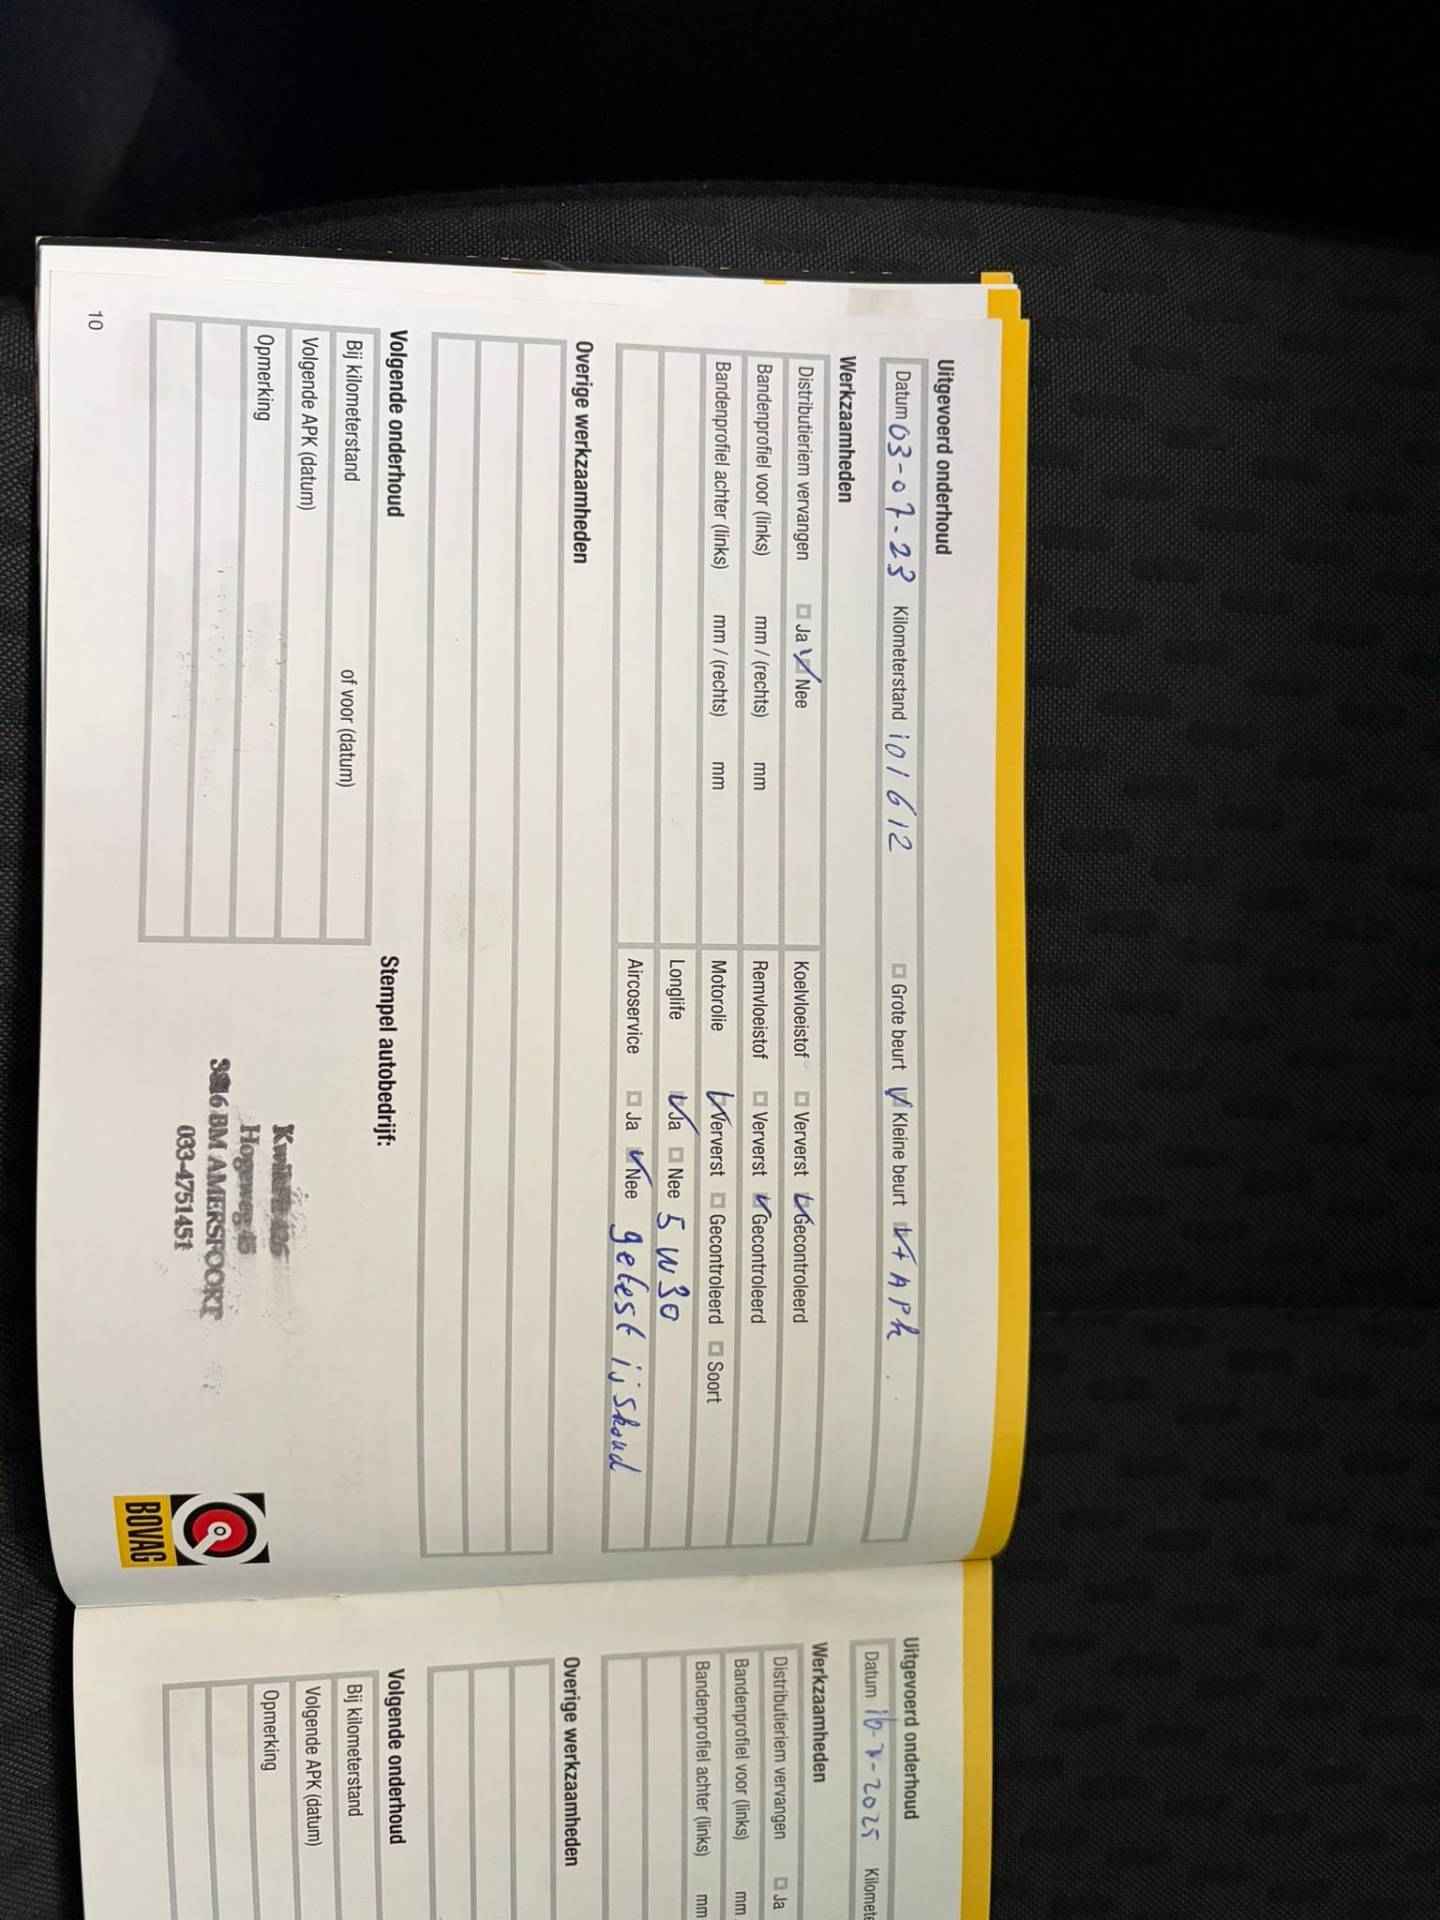 Uitgevoerd onderhoud
Datum 03-07-23 Kilometerstand 101612 Grote beurt Kleine beurt + APK
Werkzaamheden
Distributieriem vervangen Ja Nee Koelvloeistof Ververst Gecontroleerd
Bandenprofiel voor (links) mm / (rechts) mm Remvloeistof Ververst Gecontroleerd
Bandenprofiel achter (links) mm / (rechts) mm Motorolie Ververst Gecontroleerd Soort
Longlife Ja Nee 5W30
Aircoservice Ja Nee getest ijskoud
Overige werkzaamheden
Volgende onderhoud
Bij kilometerstand of voor (datum)
Volgende APK (datum)
Opmerking
Stempel autobedrijf:
Hogeweg 45
BM AMERSFOORT
033-4751451
BOVAG
10
Uitgevoerd onderhoud
Datum 16-7-2025
Werkzaamheden
Distributieriem vervangen Ja
Bandenprofiel voor (links) mm
Bandenprofiel achter (links) mm
Overige werkzaamheden
Volgende onderhoud
Bij kilometerstand
Volgende APK (datum)
Opmerking